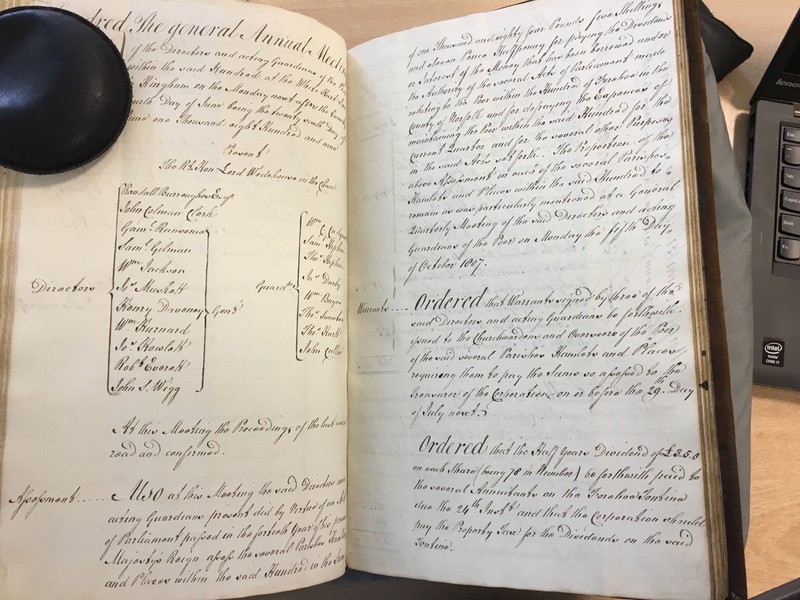 The general Annual Meeting
of the Directors and acting Guardians of the
within the said Hundred at the White Hart Inn
Hingham on the Monday next after the
Day of June being the twenty sixth Day of
June one Thousand eight Hundred and nine
Present
The Rt. Hon Lord Wodehouse in the Chair
Randall Burroughes Esqr
John Colman Clerk
Gaml. Ransome
Saml. Gilman
Wm. Jackson
Jos. Muskett
Henry Drovey
Wm. Burnard
Jos. Howlett
Robt. Everett
John S. Wigg
Directors
Gents
Guardns
Wm.
Saml. Stephen
Thos. Hopkin
Jas. Darby
Wm.
Thos.
Thos. Hart
John
At this Meeting the Proceedings of the last were
read and confirmed.
Assessment ...... Also at this Meeting the said Directors and
acting Guardians present did by Virtue of an Act
of Parliament passed in the fortieth Year of his present
Majesty's Reign assess the several Parishes Hamlets
and Places within the said Hundred in the Sum
of one Thousand and eighty four Pounds five Shillings
and eleven Pence Halfpenny for paying the Dividends
or Interest of the Money that has been borrowed under
the Authority of the several Acts of Parliament made
relating to the Poor within the Hundred of Forehoe in the
County of Norfolk and for defraying the Expences of
maintaining the Poor within the said Hundred for the
Current Quarter and for the several other Purposes
in the said Acts set forth. The Proportion of the
above Assessment on each of the several Parishes
Hamlets and Places within the said Hundred to
remain as was particularly mentioned at a General
Quarterly Meeting of the said Directors and acting
Guardians of the Poor on Monday the fifth Day
of October 1807.
Warrants .... Ordered that Warrants signed by three of the
said Directors and acting Guardians be forthwith
issued to the Churchwardens and Overseers of the Poor
of the said several Parishes Hamlets and Places
requiring them to pay the Sums so assessed to the
Treasurer of the Corporation on or before the 29th. Day
of July next.
Ordered that the Half Years Dividend of £3.5.0
on each Share (being 78 in Number) be forthwith paid to
the several Annuitants on the Forehoe Tontine
due the 24th Inst. and that the Corporation should
pay the Property Tax for the Dividends on the said
Tontine.
lenovo
Esc
Tab
Caps
Shift
Fn
intel
inside
CORE i7